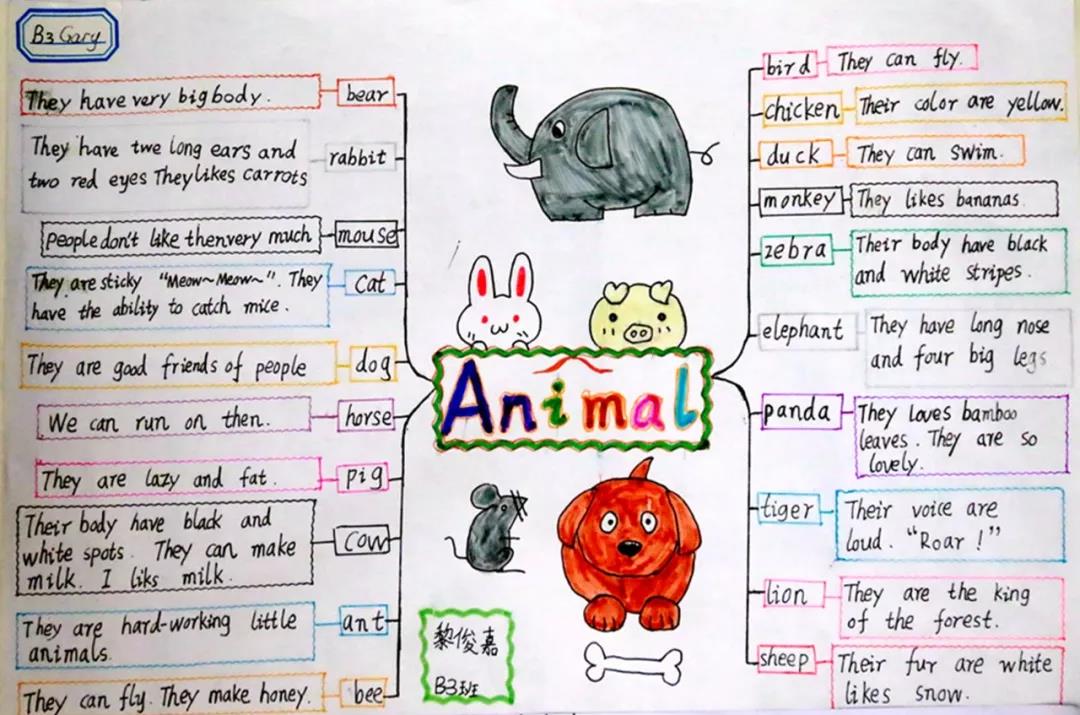 B3 Gary
They have very big body.
bear
They have two long ears and
two red eyes They likes carrots
rabbit
People don't like then very much
mouse
They are sticky "Meow~Meow~". They
have the ability to catch mice.
cat
They are good friends of people
dog
We can run on then.
horse
They are lazy and fat.
pig
Their body have black and
white spots. They can make
milk. I liks milk.
cow
They are hard-working little
animals.
ant
They can fly. They make honey.
bee
Animal
黎俊嘉
B3班
bird
They can fly.
chicken
Their color are yellow.
duck
They can swim.
monkey
They likes bananas.
zebra
Their body have black
and white stripes.
elephant
They have long nose
and four big legs
panda
They loves bamboo
leaves. They are so
lovely.
tiger
Their voice are
loud. "Roar!"
lion
They are the king
of the forest.
sheep
Their fur are white
likes snow.